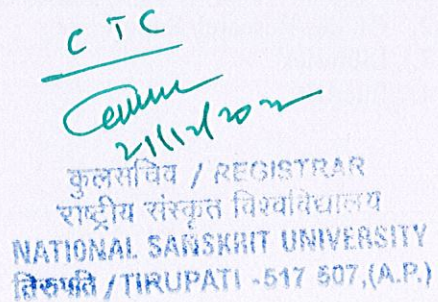 C T C
21/12/202
कुलसचिव / REGISTRAR
राष्ट्रीय संस्कृत विश्वविद्यालय
NATIONAL SANSKRIT UNIVERSITY
तिरुपति / TIRUPATI -517 507,(A.P.)